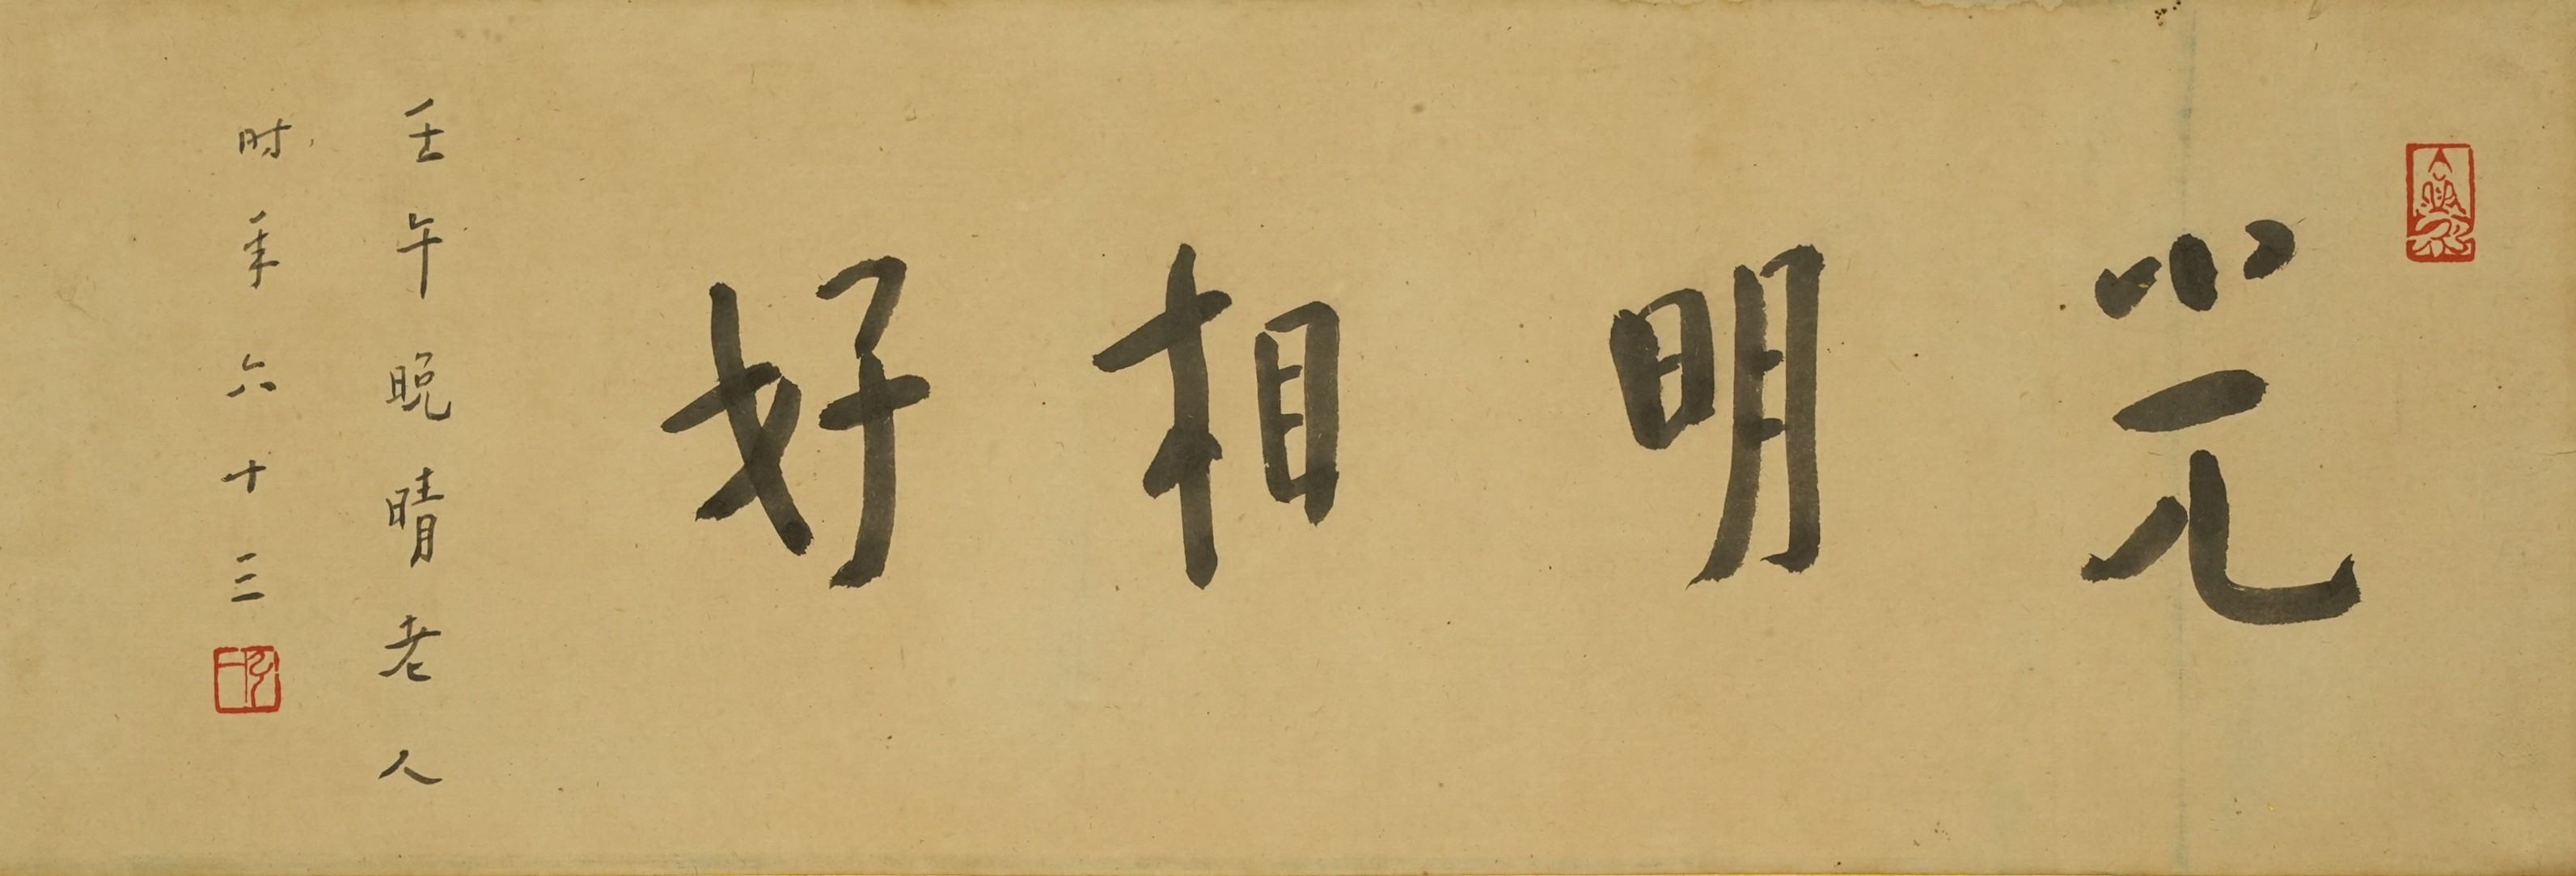 光明相好
壬午晚晴老人
时年六十三